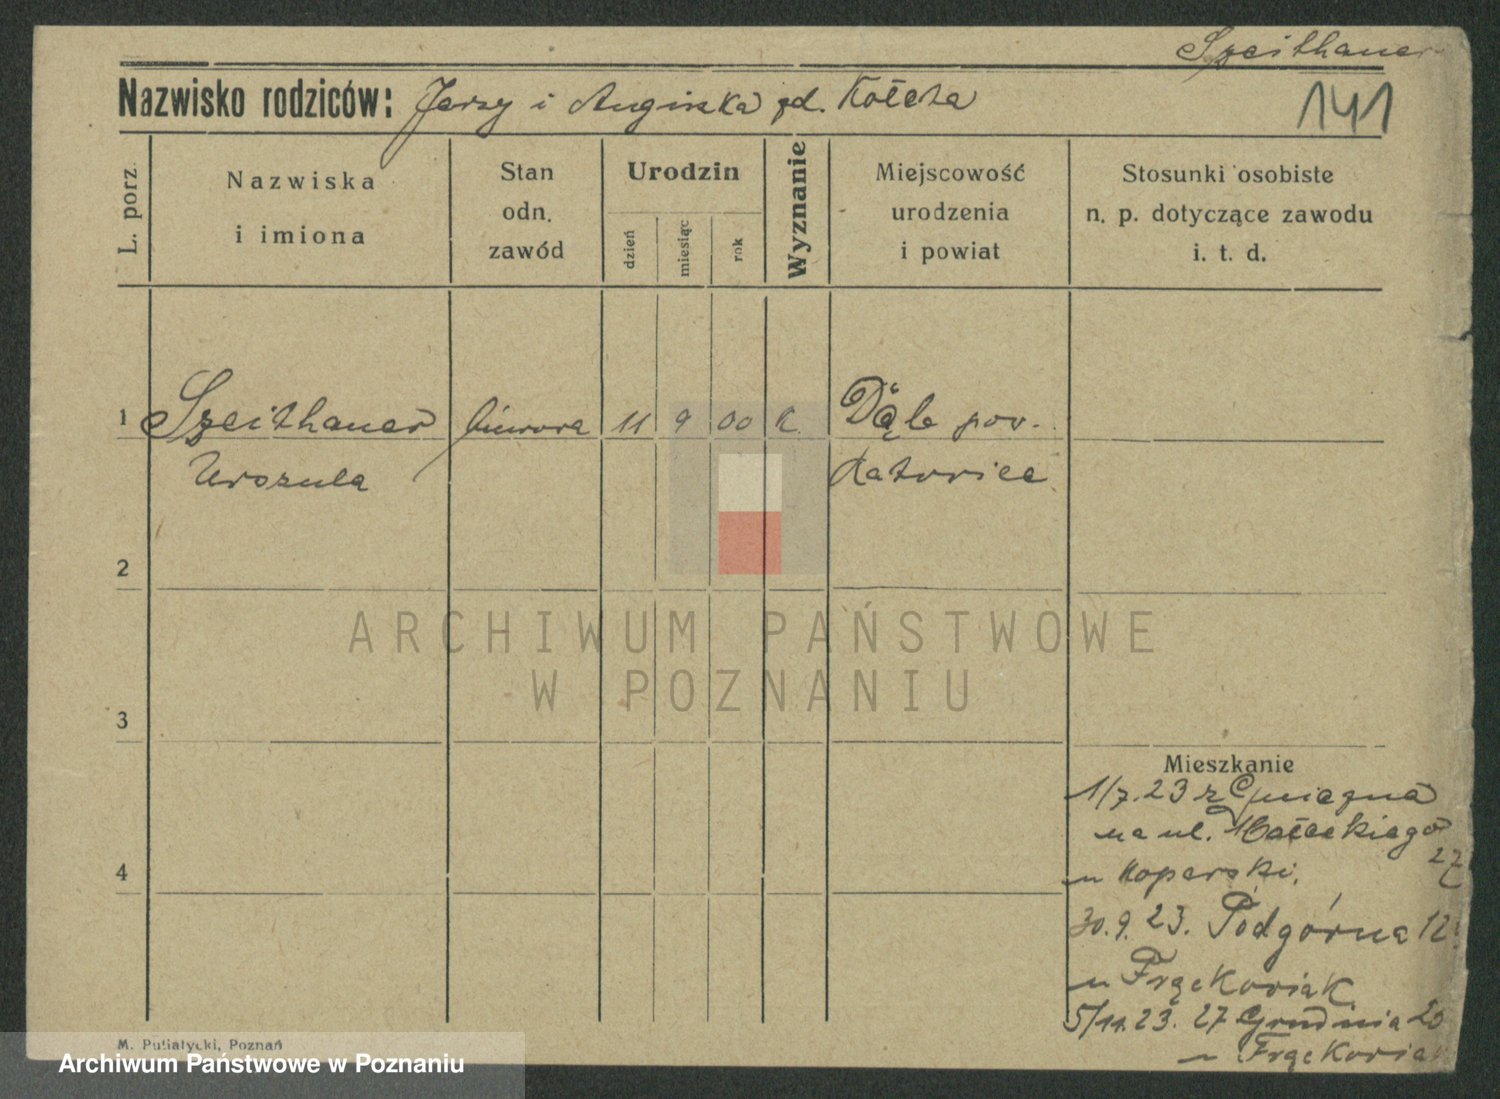 Szeithauer
Nazwisko rodziców: Jerzy i Augiszka zd. Kołcka
141
L. porz.
Nazwiska
i imiona
Stan
odn.
zawód
Urodzin
dzień
miesiąc
rok
Wyznanie
Miejscowość
urodzenia
i powiat
Stosunki osobiste
n. p. dotyczące zawodu
i. t. d.
1 Szeithauer biurowa 11 9 00 k. Dąb pow.
Urszula Katowice
2
3
4
Mieszkanie
1/7.23 z Gniezna
na ul. Małeckiego 27
u Koperski.
30.9.23. Podgórna 12
u Frąckowiak
5/11.23. 27 Grudnia 20
u Frąckowiak
M. Putiatycki, Poznań
ARCHIWUM PAŃSTWOWE
W POZNANIU
Archiwum Państwowe w Poznaniu